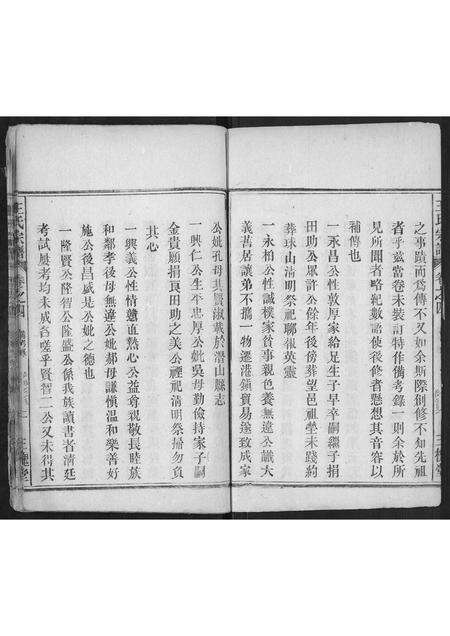 之事蹟而為傳不又如余斯際創修不知先祖
者乎茲當卷未裝訂特作備考錄一則余於所
見所聞者略紀數語使後修者懸想其音容以
補傳也
一永昌公性敦厚家給足生子早卒嗣繼子捐
田助公眾許公餘年後傍葬望邑祖塋未踐約
葬球山清明祭祀聊慰英靈
一永相公性誠樸家貧事親色養無違公識大
義舊居讓弟不攜一物遷港鎮貿易遂致成家
公妣孔母于其賢淑載於潛山縣志
一興仁公生平忠厚公妣吳母勤儉持家子嗣
金貴願捐良田助之美公禋祀清明祭掃勿負
其心
一興義公性情戇直熱心公益尊親敬長睦族
和鄰孝後母無違公妣郝母謙慎溫和樂善好
施公後昌盛是公妣之德也
一隆賢公隆智公隆盛公係我族讀書者濟廷
考試屢考均未成名嗟乎賢智二公又未得其
王氏宗譜
卷之四